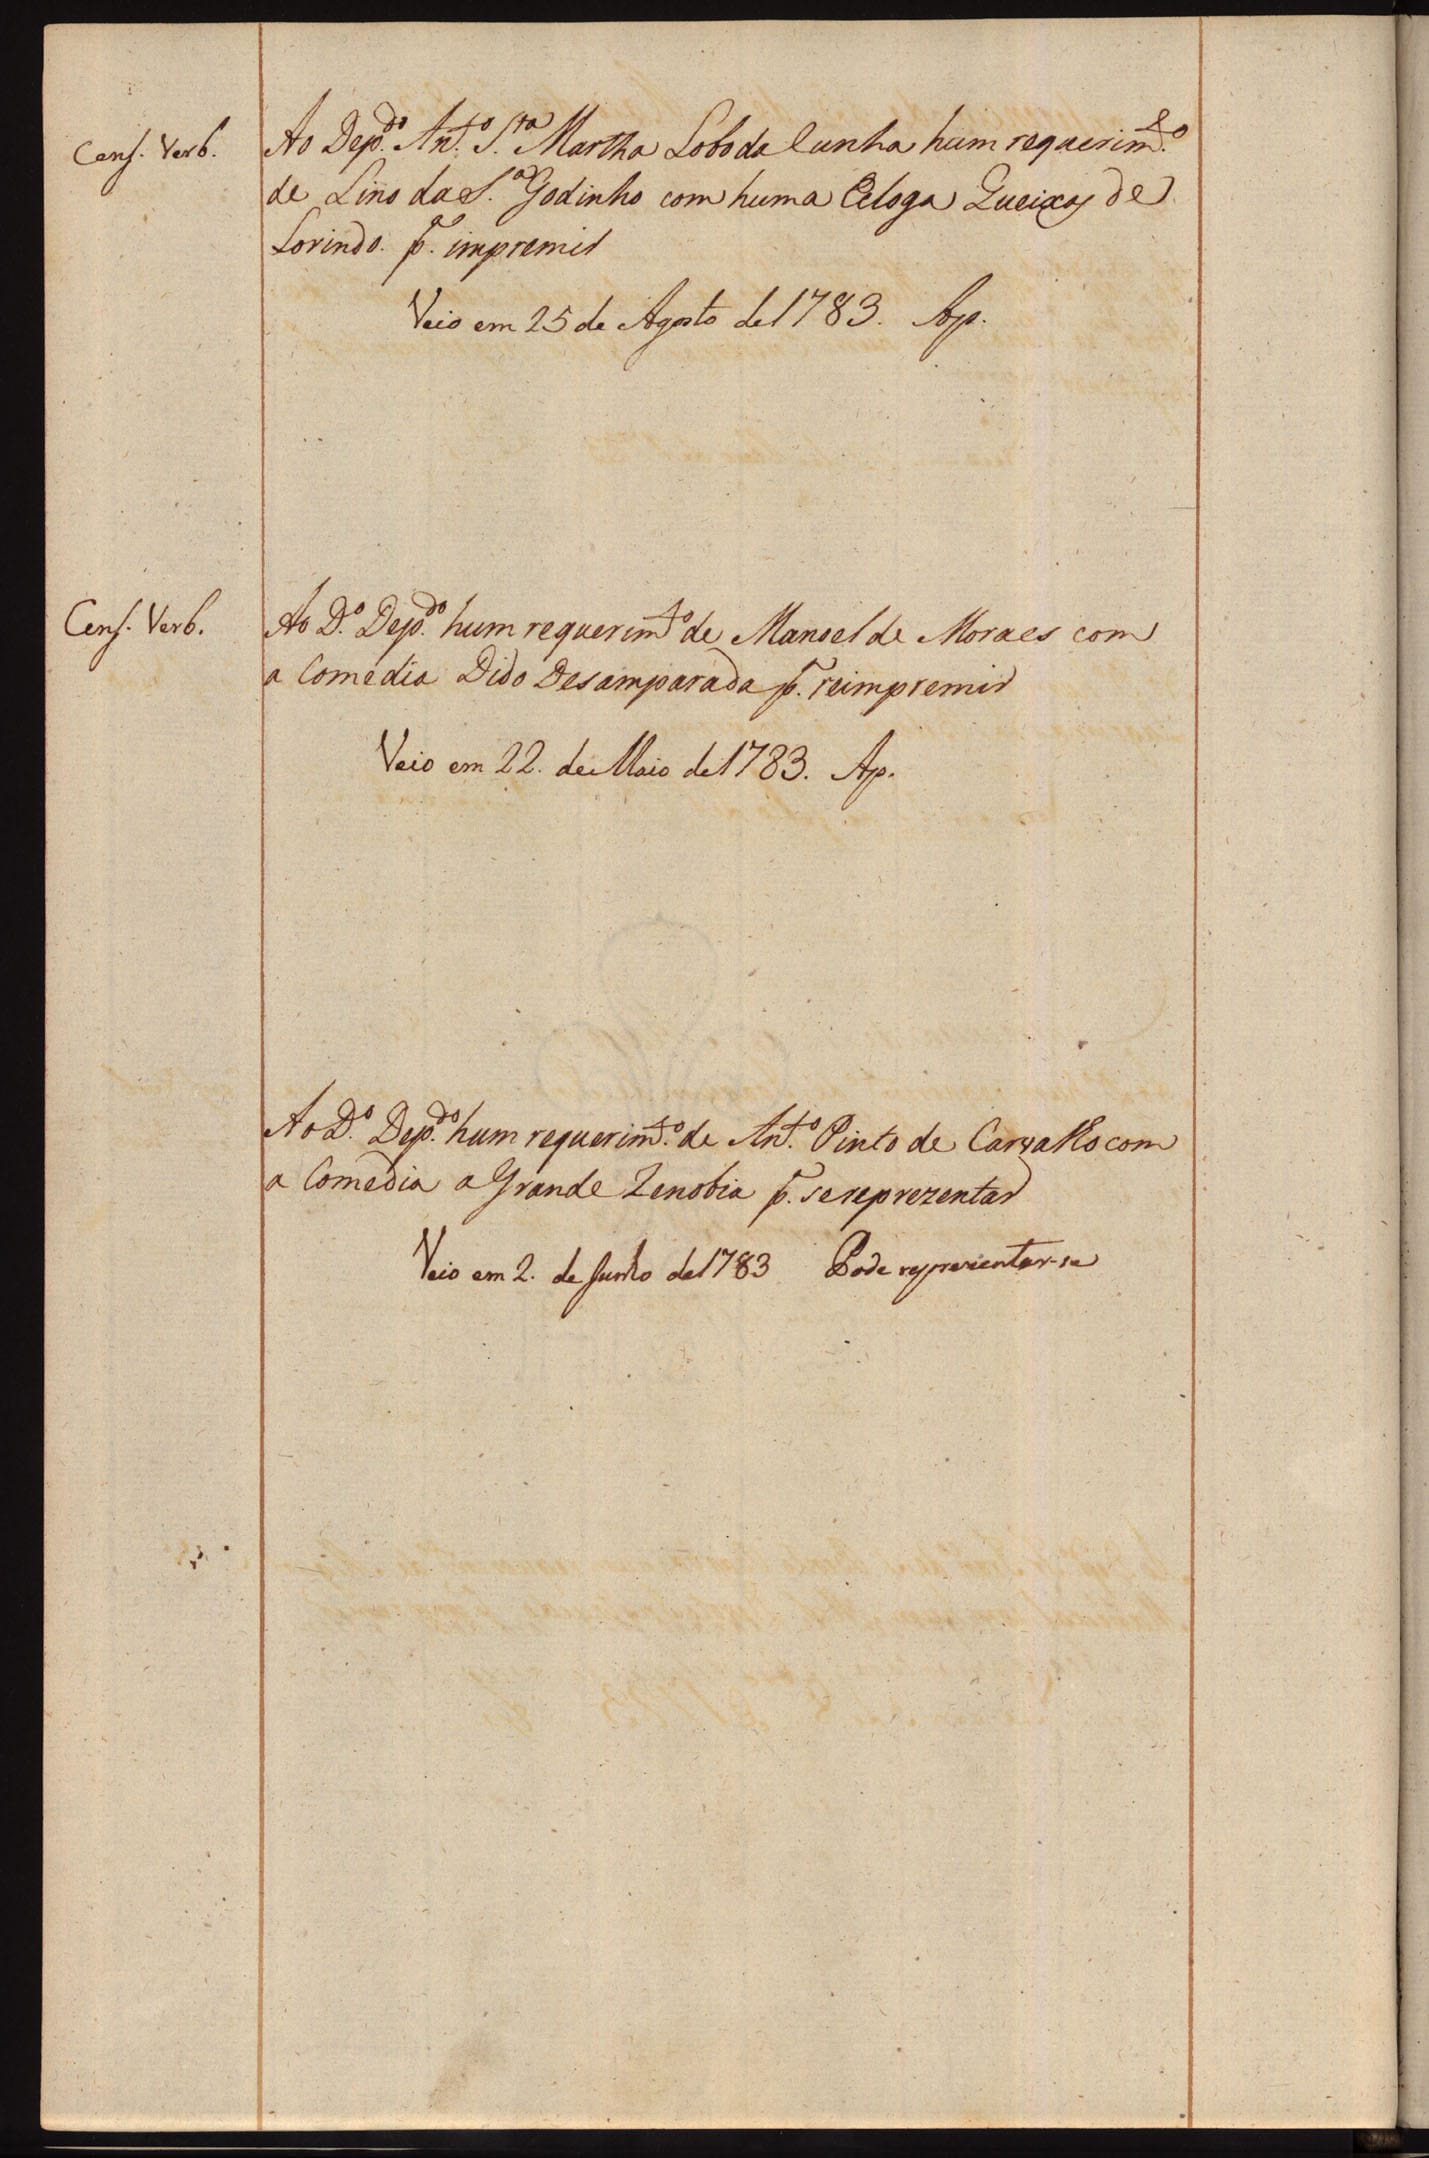 Cens. Verb.
Ao Dep.do Ant.o S.ta Martha Lobo da Cunha hum requerim.to
de Lino da S.a Godinho com huma Ecloga Queixas de
Lorindo. p.a impremir
Veio em 25 de Agosto de 1783. Ap.
Cens. Verb.
Ao D.o Dep.do hum requerim.to de Manoel de Moraes com
a Comedia Dido Desamparada p.a reimpremir
Veio em 22. de Maio de 1783. Ap.
Ao D.o Dep.do hum requerim.to de Ant.o Pinto de Carvalho com
a Comedia a Grande Zenobia p.a se reprezentar
Veio em 2. de Junho de 1783 Pode reprezentar-se